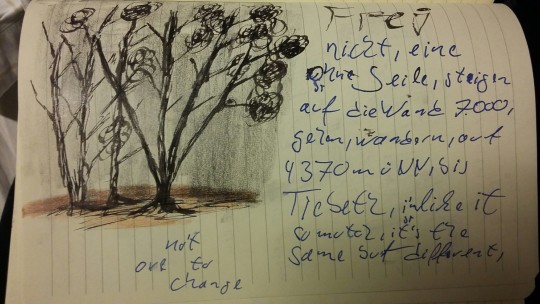 Frey
nicht, eine
ohne Seile, steigen
auf die Wand 7000,
gehn, wandern, auf
4370 m ü NN, bis
Tiebetz, i like it
so much, it's the
same but different,
not
one to
change